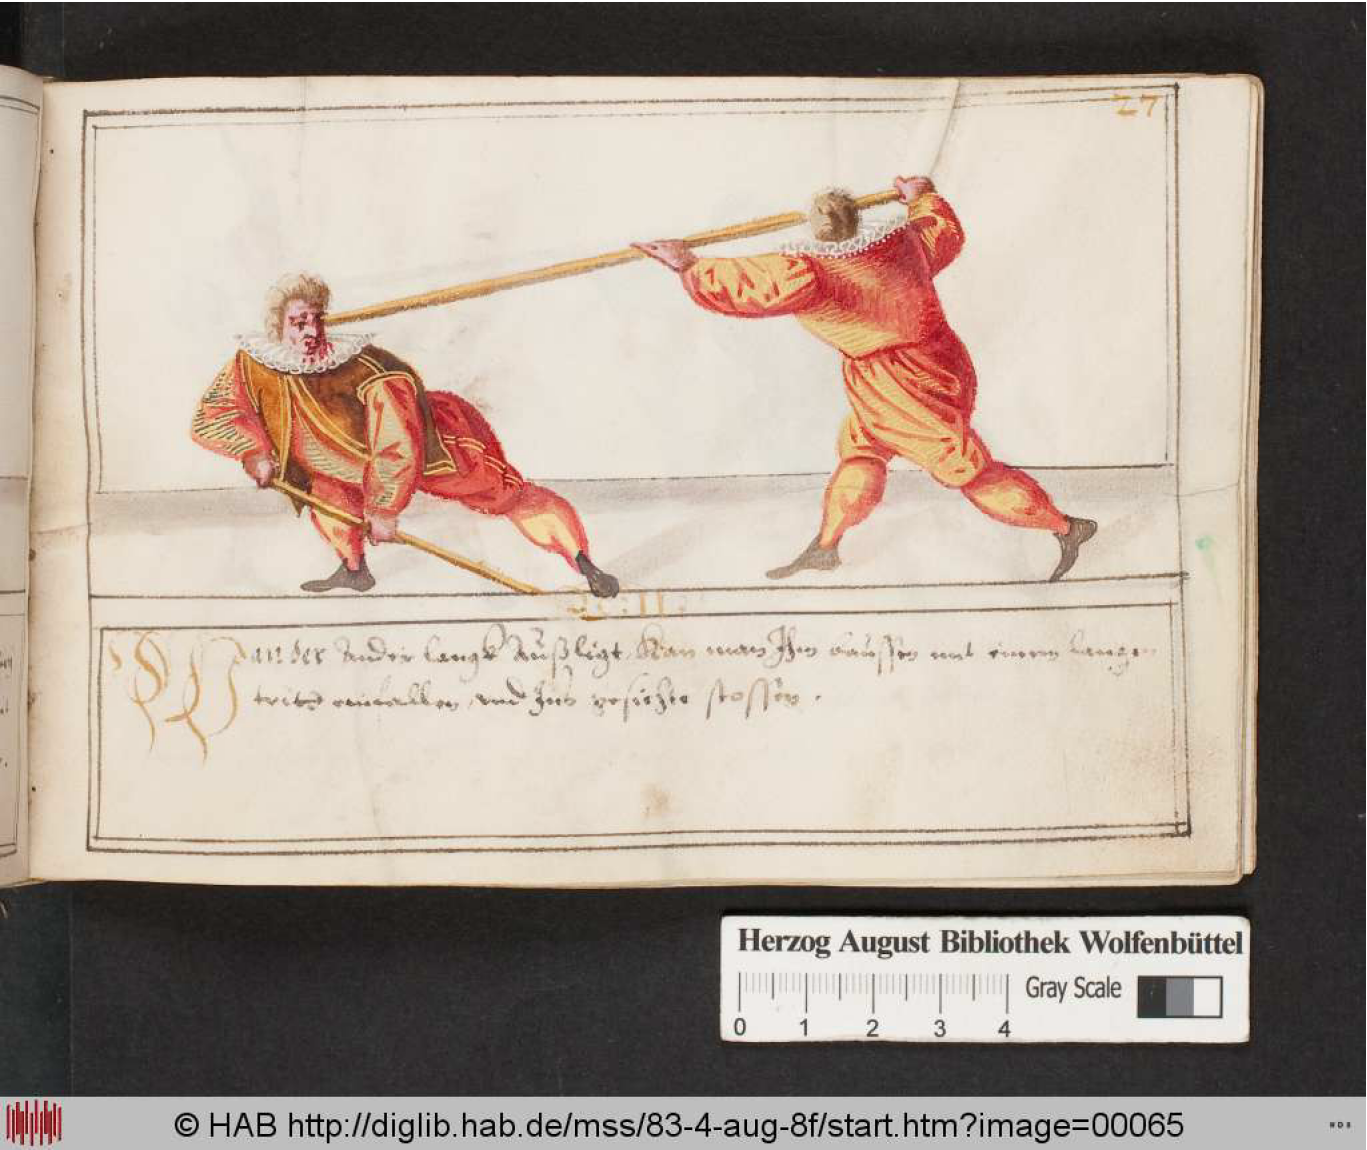 27
Wan der ander langk Außligt, Kan man Ihm baussen mit einem langen
tritt einfallen, und Ins gesichte stossen.
Herzog August Bibliothek Wolfenbüttel
0 1 2 3 4 Gray Scale
© HAB http://diglib.hab.de/mss/83-4-aug-8f/start.htm?image=00065